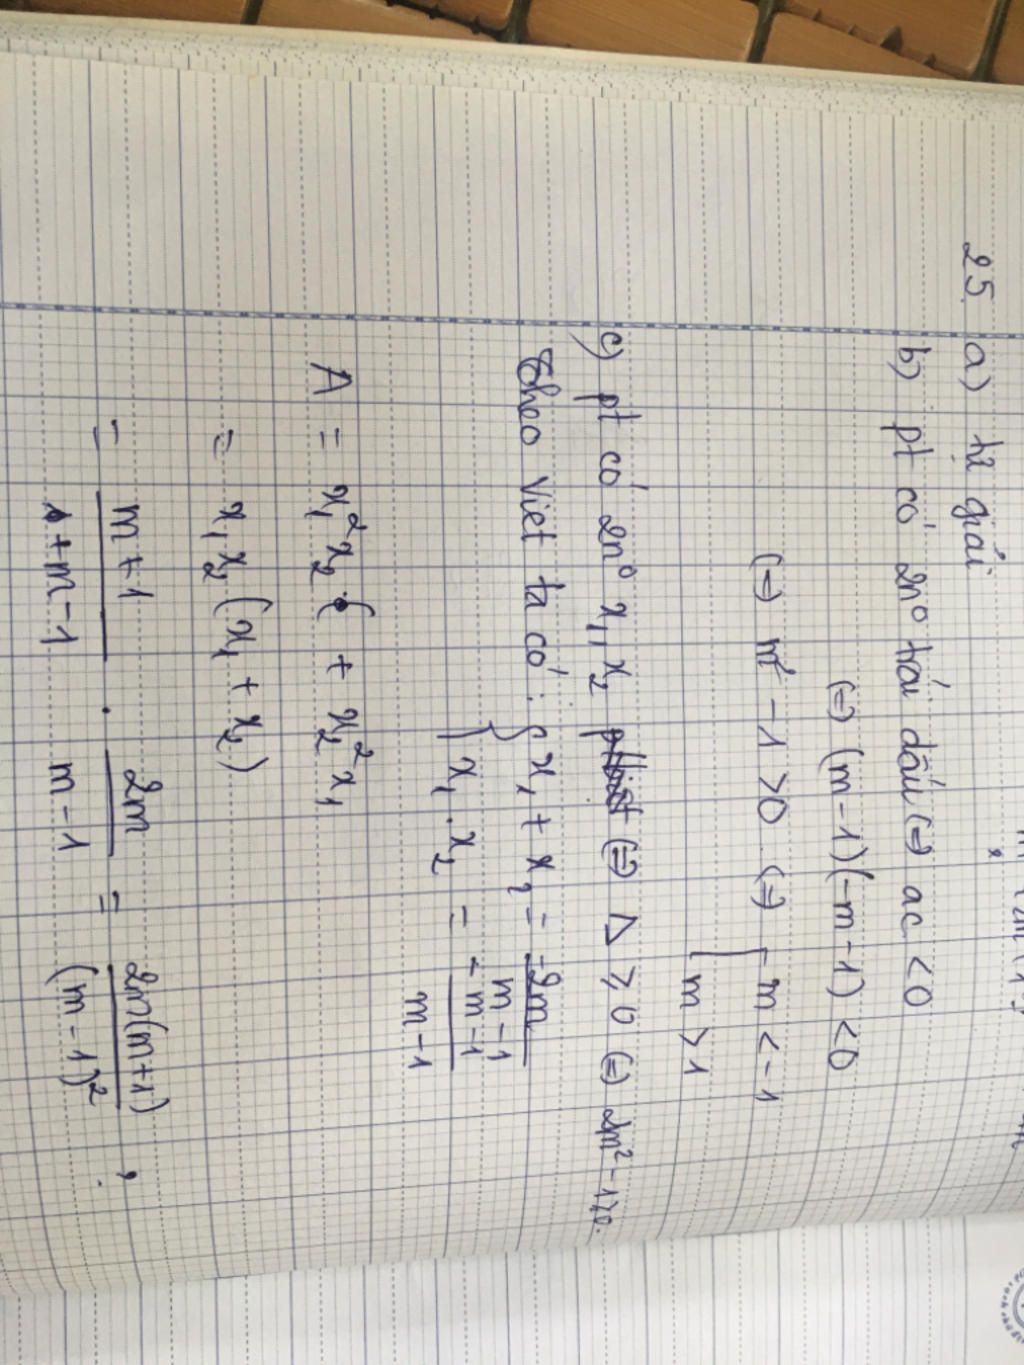 25 a) tự giải
b) pt có 2n⁰ trái dấu (=) ac < 0
(=) (m - 1)(-m - 1) < 0
(=) m² - 1 > 0 (=) [ m < -1
m > 1
c) pt có 2n⁰ x₁, x₂ (=) Δ ≥ 0 (=) 2m² - 1 ≥ 0.
Theo Viet ta có: { x₁ + x₂ = -2m / m - 1
x₁ . x₂ = -m - 1 / m - 1
A = x₁²x₂ + x₂²x₁
= x₁x₂(x₁ + x₂)
= m + 1 / m - 1 . 2m / m - 1 = 2m(m + 1) / (m - 1)²